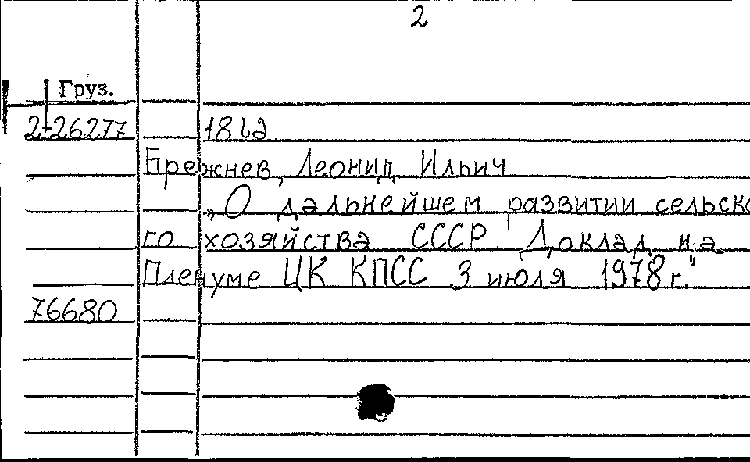 2
Груз.
2-26277 18 ба
Брежнев, Леонид Ильич
„О дальнейшем развитии сельско
го хозяйства СССР Доклад на
Пленуме ЦК КПСС 3 июля 1978г."
76680